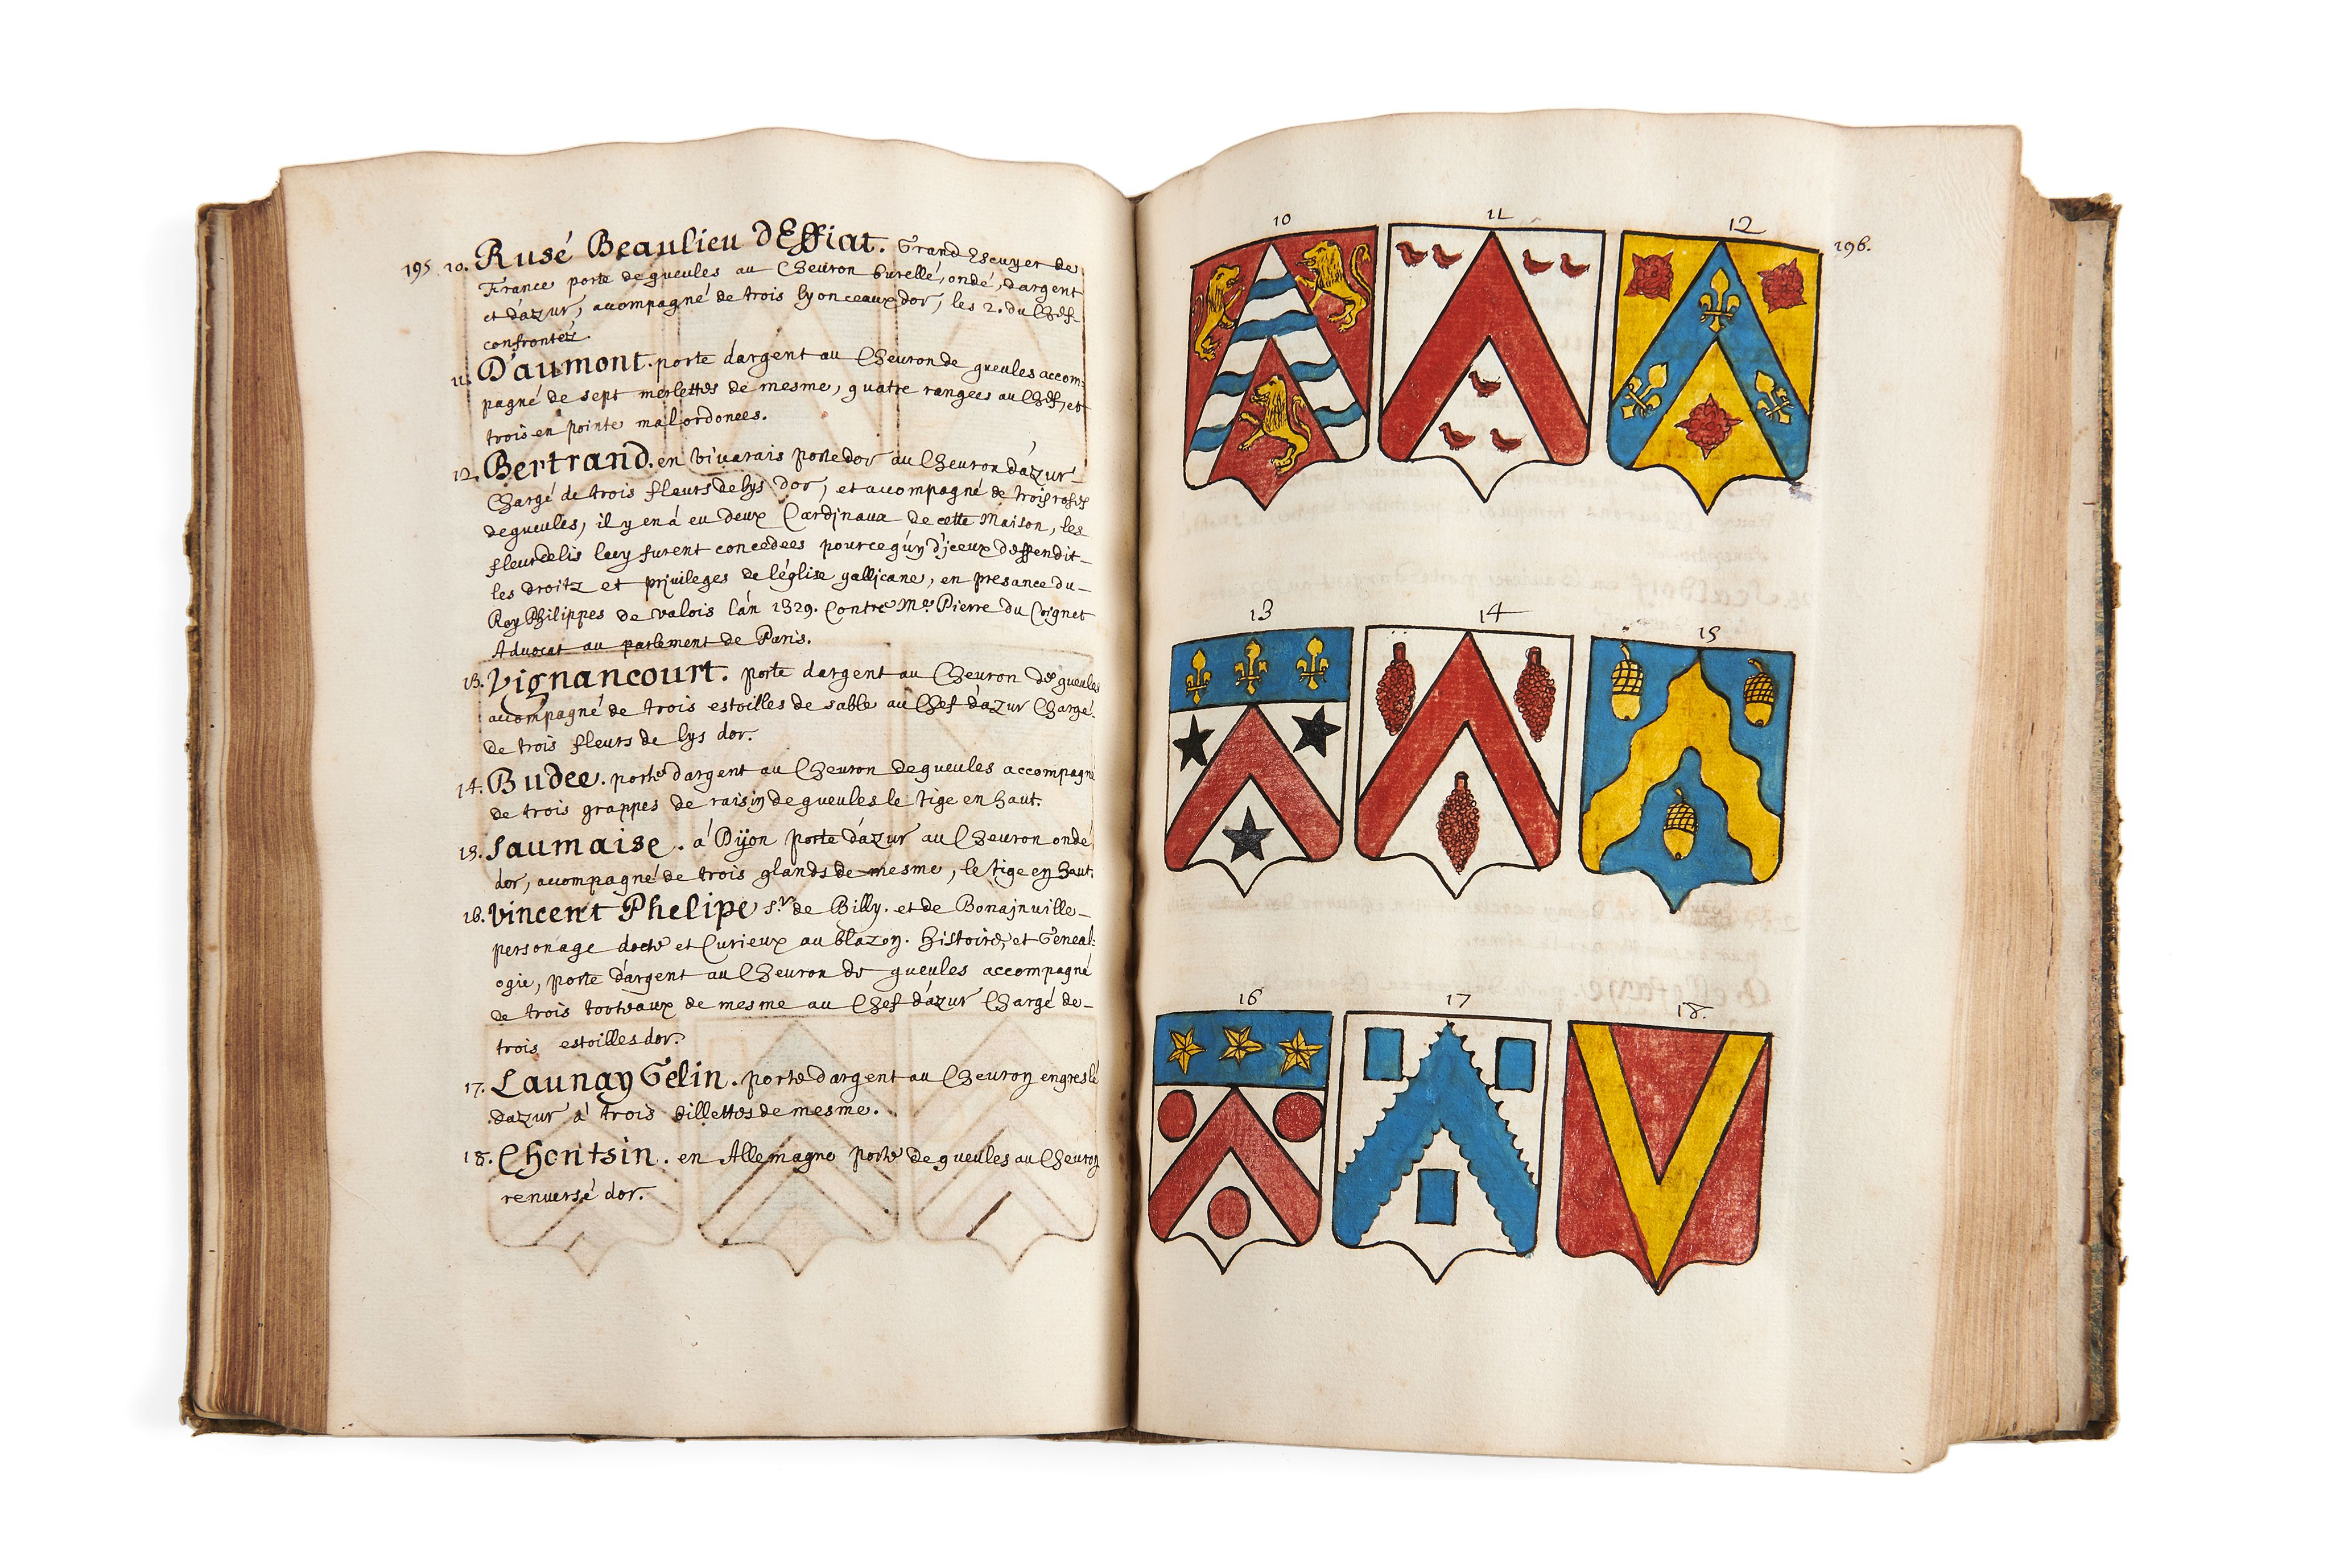 195. 10. Rusé Beaulieu dEffiat. Grand Escuyer de
France porte de gueules au Cheuron burellé, ondé, dargent
et dázur, acompagné de trois lyonceaux dor, les 2. du Chef-
confrontéz.
11. D'aumont. porte dargent au Cheuron de gueules accom-
pagné de sept merlettes de mesme, quatre rangees au Chef, et
trois en pointe mal ordonees.
12. Bertrand. en vivarais porte dor au Cheuron dázur-
Chargé de trois fleurs de lys dor, et acompagné de trois roses
de gueules, il y en á eu deux Cardinaux de cette Maison, les
fleurdelis luy furent concedees pource qúyn d'iceux deffendit-
les droitz et privileges de léglise gallicane, en presance du-
Roy Philippes de valois lán 1329. Contre Me. Pierre du Coignet
Advocat au parlement de Paris.
13. Vignancourt. porte dargent au Cheuron de gueules
acompagné de trois estoilles de sable au Chef dázur Chargé.
de trois fleurs de lys dor.
14. Budee. porte dargent au Cheuron de gueules accompagné
de trois grappes de raisin de gueules le tige en haut.
15. Saumaise. á Dijon porte dázur au Cheuron ondé
dor, acompagné de trois glands de mesme, le tige en haut.
16. Vincent Phelipe sr. de Billy. et de Bonainuille-
personage docte et Curieux au blazon. histoire, et Geneal-
ogie, porte dárgent au Cheuron de gueules accompagné
de trois torteaux de mesme au Chef dázur Chargé de-
trois estoilles dor.
17. Launay Gelin. porte dargent au Cheuron engreslé
dazur á trois billettes de mesme.
18. Chontsin. en Allemagne porte de gueules au Cheuron
renuersé dor.
10 11 12 196.
13 14 15
16 17 18.